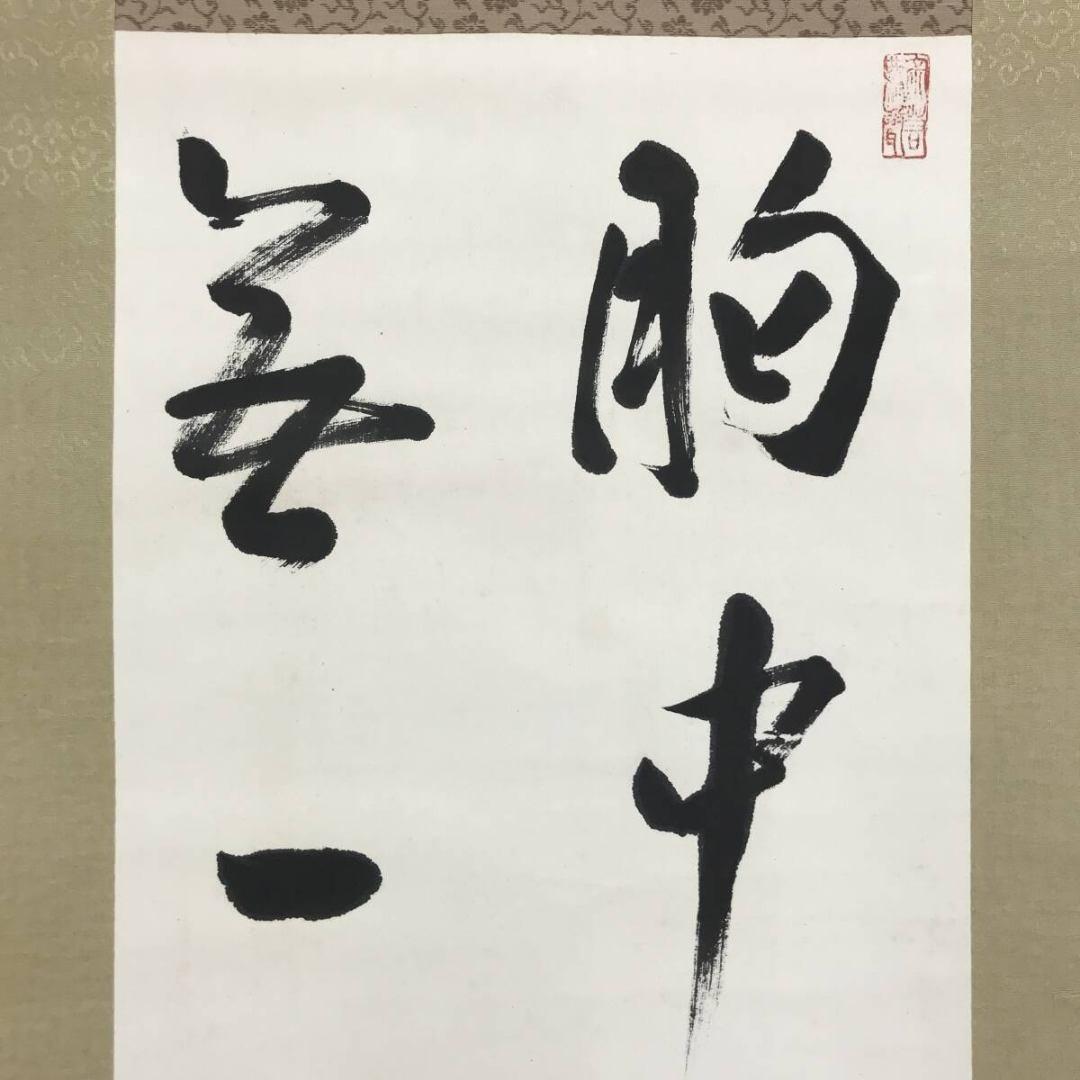 胸中
無一